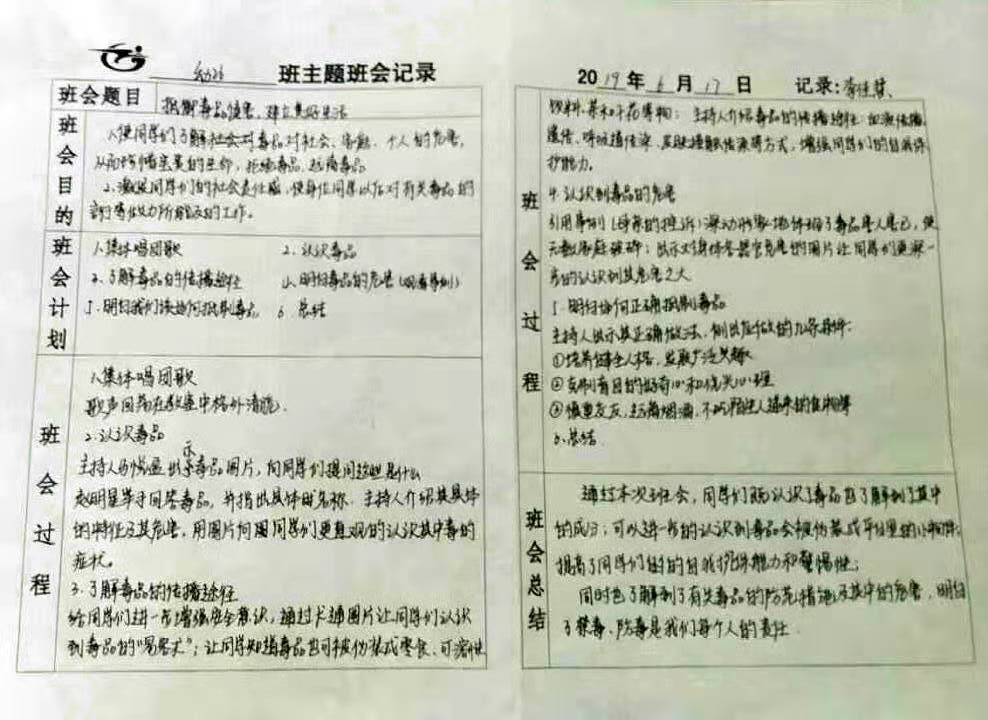 班主题班会记录
2019年6月17日 记录:李佳慧
班会题目
抵制毒品侵害,建立美好生活
班会目的
1.使同学们了解社会对毒品对社会、家庭、个人的危害,
从而珍惜宝贵的生命,拒绝毒品,远离毒品
2.激发同学们的社会责任感,使每位同学以后对有关毒品的
班会计划
1.集体唱团歌 2.认识毒品
3.了解毒品的传播途径 4.明白毒品的危害
5.明白我们该如何抵制毒品 6.总结
班会过程
1.集体唱团歌
歌声回荡在教室中格外清脆.
2.认识毒品
主持人 出示毒品图片,向同学们提问这些是什么
赵明星举手回答毒品,并指出具体的名称.主持人介绍其具体
的特征及其危害,用图片向同学们更直观的认识其中毒的
症状。
3.了解毒品的传播途径
给同学们进一步增强安全意识,通过卡通图片让同学们认识
到毒品的“易容术”;让同学知道毒品也可被伪装成零食、可溶性
饮料、茶和干花等物;主持人介绍毒品的传播途径:血液传播、
遗传、呼吸道传染、皮肤接触传染等方式,增强同学们的自我保
护能力。
班会过程
4.认识到毒品的危害
引用事例(母亲的控诉)深动形象地体现了毒品害人害己,使
无数家庭破碎;出示 身体各器官危害的图片让同学们更深一
步的认识到其危害之大
5.明白如何正确抵制毒品
主持人出示其正确做法,例出应做的几条条件:
①培养健全人格,发展广泛兴趣
②克制盲目的好奇心和侥幸心理
③慎重交友,远离烟酒,不
6.总结
班会总结
通过本次班会,同学们既认识了毒品也了解到了其中
的成分;可以进一步的认识到毒品会被伪装成平日里的小物件;
提高了同学们的的自我保护能力和警惕性;
同时也了解到了有关毒品的防范措施及其中的危害,明白
了禁毒、防毒是我们每个人的责任.